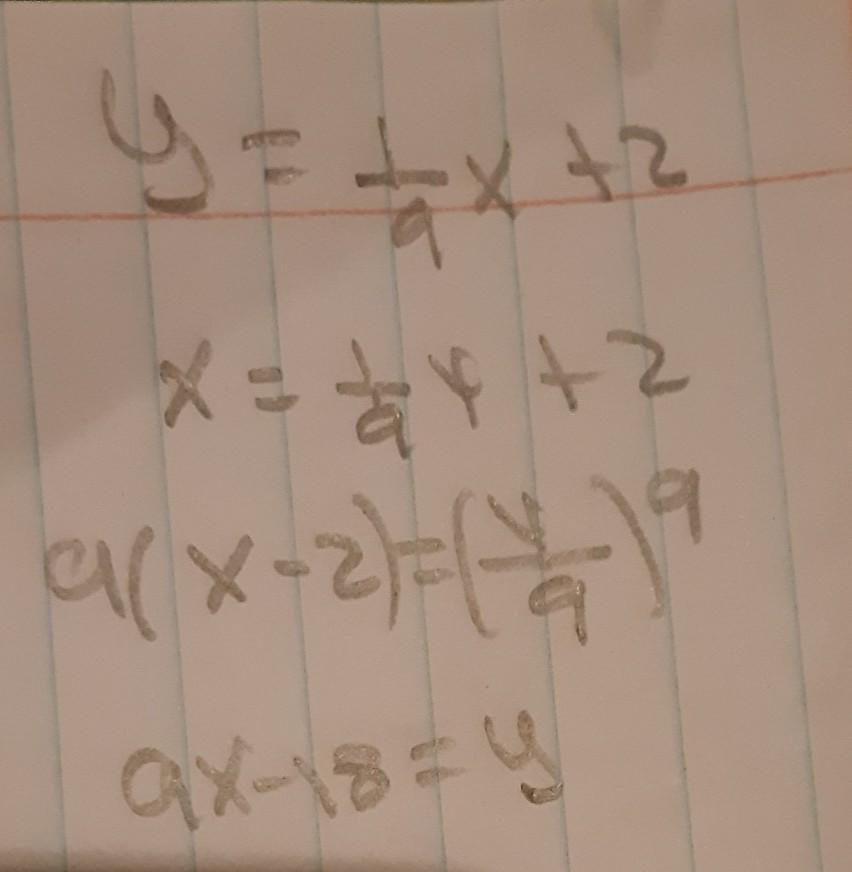 y = 1/9 x + 2
x = 1/9 y + 2
9(x - 2) = (y/9)9
9x - 18 = y